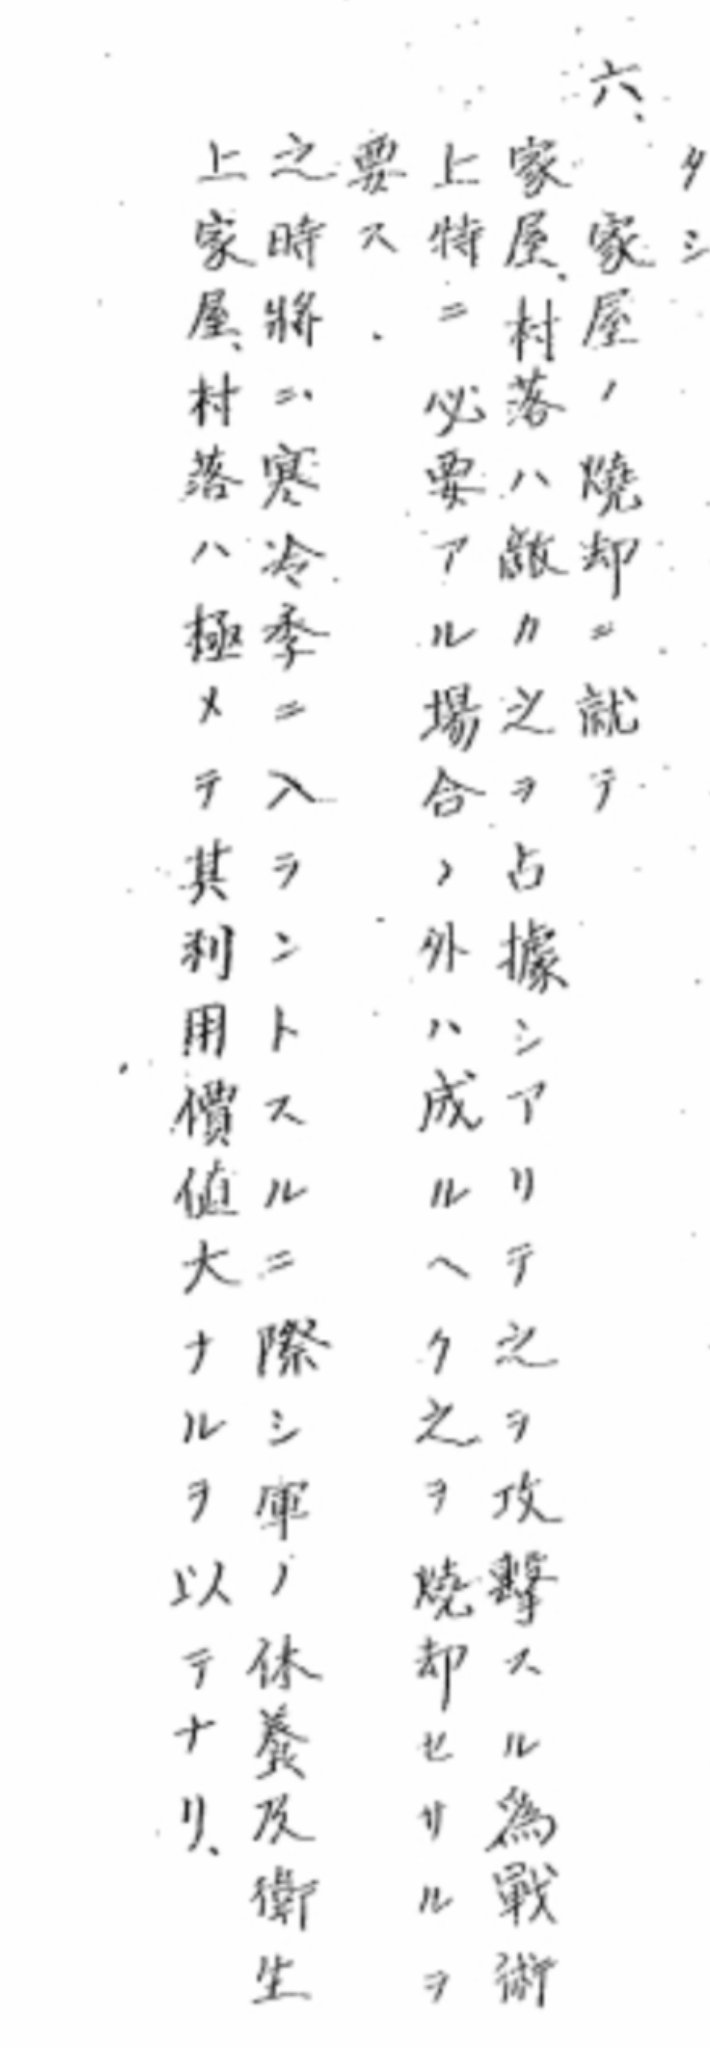 タシ
六、家屋ノ燒却ニ就テ
家屋、村落ハ敵カ之ヲ占據シアリテ之ヲ攻擊スル爲戰術
上特ニ必要アル場合ノ外ハ成ルヘク之ヲ燒却セサルヲ
要ス
之時將ニ寒冷季ニ入ラントスルニ際シ軍ノ休養及衛生
上家屋、村落ハ極メテ其利用價値大ナルヲ以テナリ、